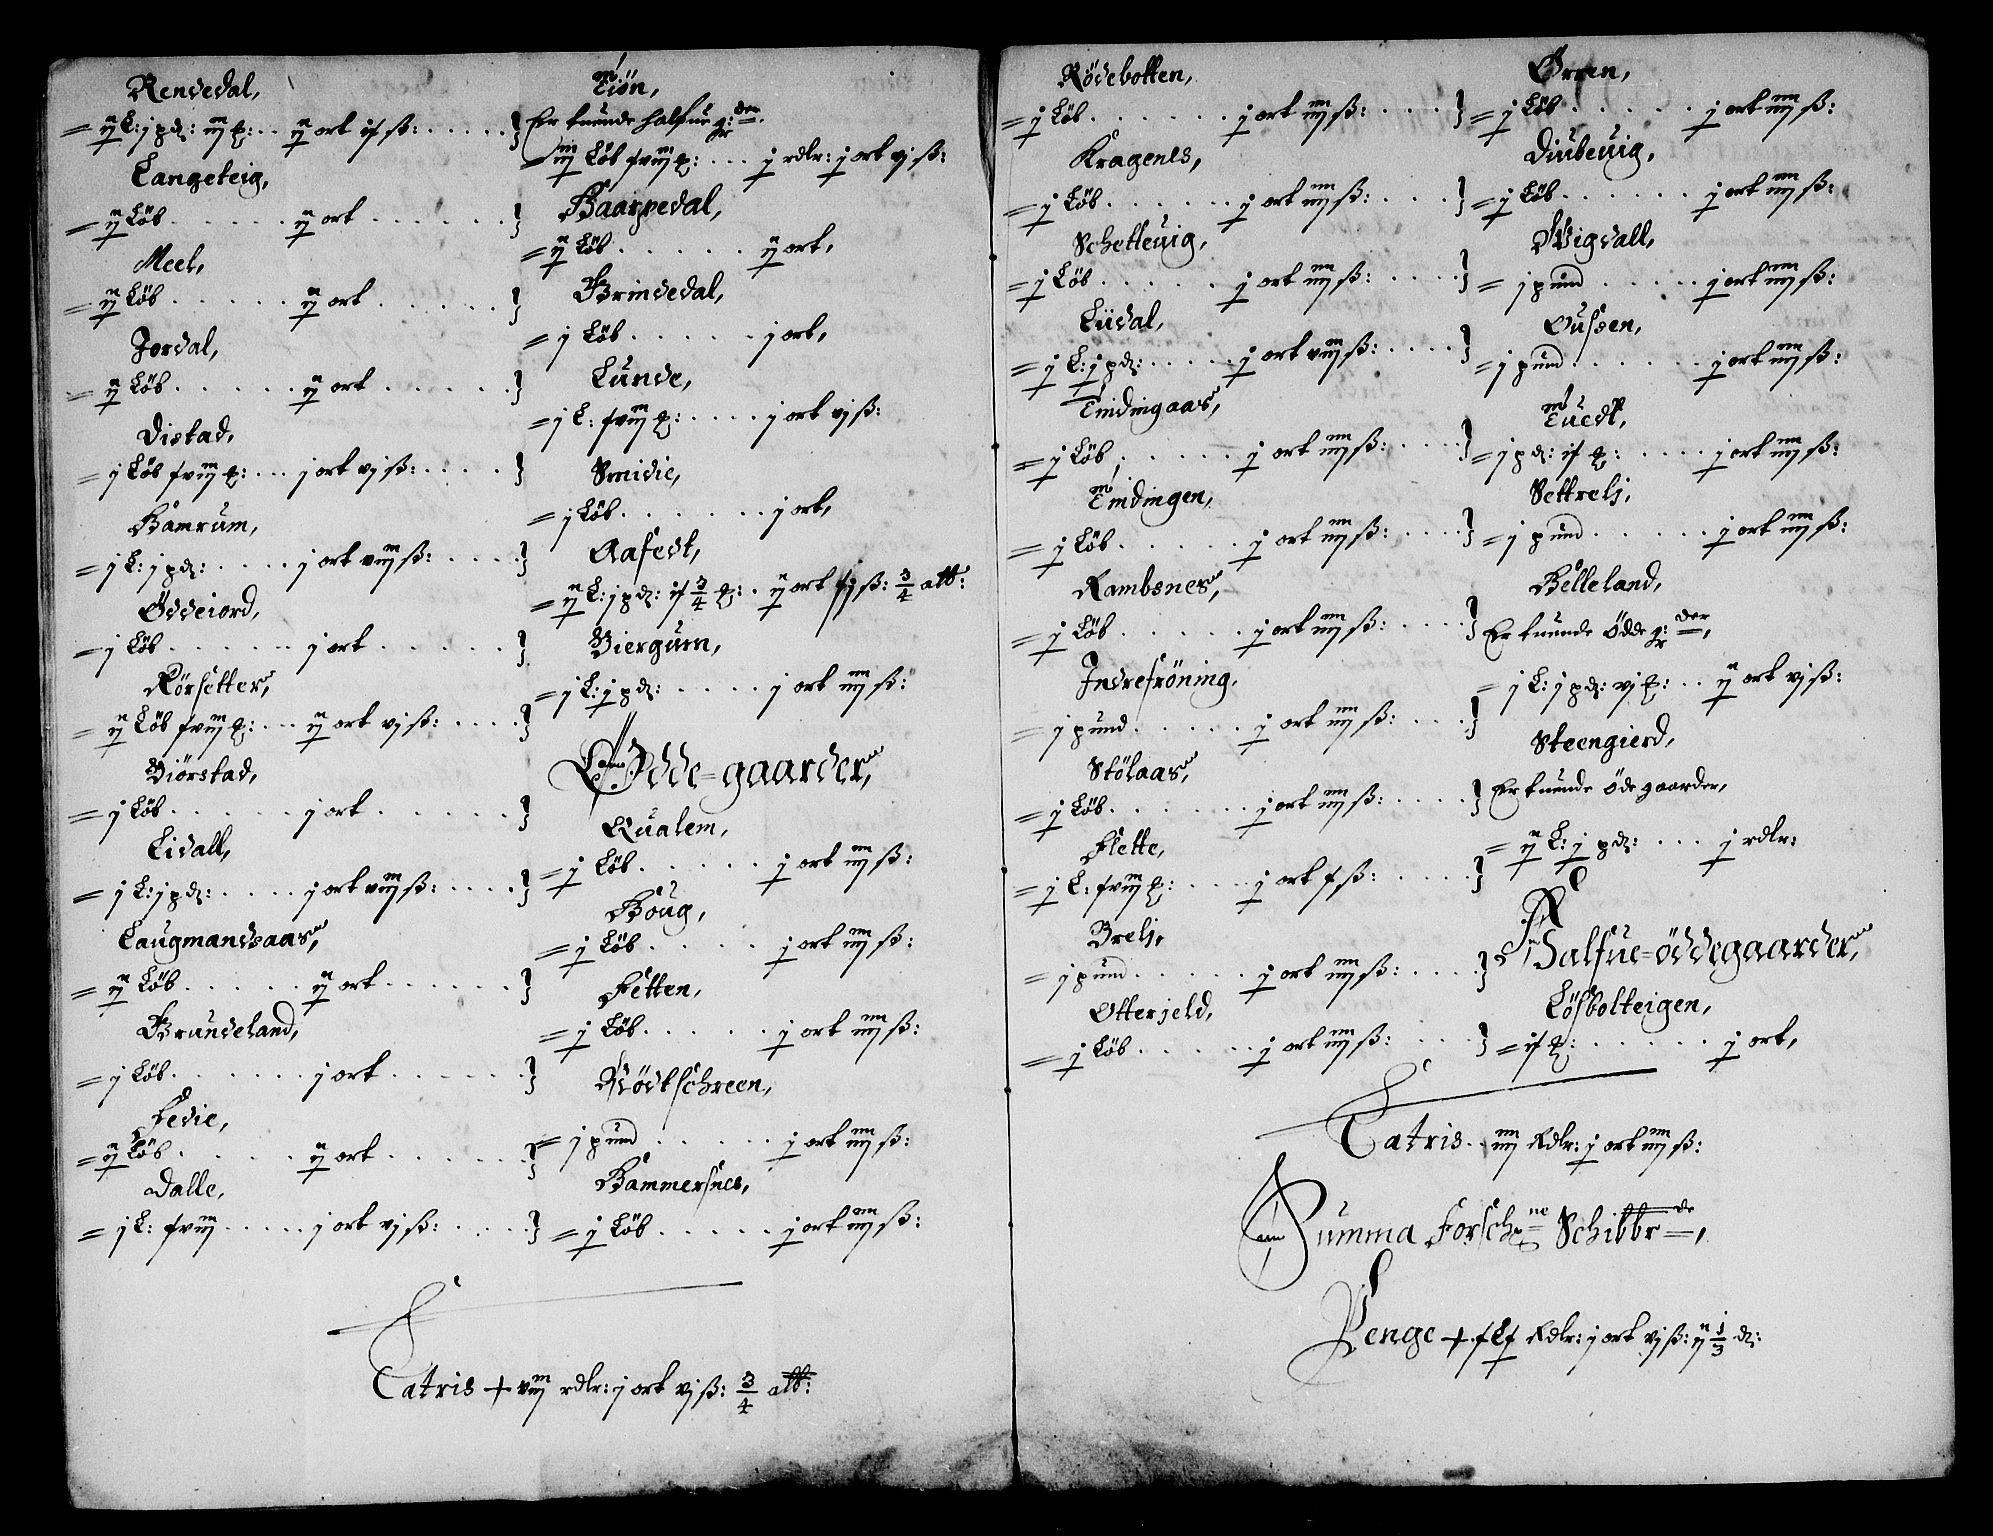 Rendedal,
= ij L: j pd: iij ȹ: .. ij ort if ß: .....}
Langeteig,
= ij Löb ..... ij ort ......}
Meel,
= ij Löb ..... ij ort .....}
Jordal,
= ij Löb ..... ij ort .....}
Distad,
= j Löb fviij ȹ: ... j ort vj ß: ....}
Bamrum,
= j L: j pd: .... j ort viij ß: ....}
Öddeiord,
= j Löb ...... j ort .....}
Rörsetter,
= ij Löb fviij ȹ: ... ij ort vj ß: ....}
Biörstad,
= j Löb ..... j ort ......}
Lidall,
= j L: j pd: .... j ort viij ß: ....}
Laugmandsaas,
= ij Löb ..... ij ort ......}
Brundeland,
= j Löb ...... j ort ......}
Fedie,
= ij Löb ..... ij ort ......}
Dalle,
= j L: fviij ..... j ort vj ß: ....}
Tiön,
Er tuende halfue g: der.
= iiij Löb fviij ȹ: ... j rdlr: j ort vj ß:
Baarpedal,
= ij Löb ...... ij ort,
Brindedal,
= j Löb ...... j ort,
Lunde,
= j L: fviij ȹ: .... j ort vj ß:
Smidie,
= j Löb ...... j ort,
Aafedt,
= ij L: j pd: if 3/4 ȹ: . ij ort fj ß: 3/4 alb:
Biergum,
= j L: j pd: .... j ort iiij ß:
Ödde=gaarder,
Qualem,
= j Löb ..... j ort iiij ß:
Boug,
= j Löb ..... j ort iiij ß:
Fetten,
= j Löb ..... j ort iiij ß:
Rödtschreen,
= j pund ..... j ort iiij ß:
Bammersnes,
= j Löb ..... j ort iiij ß:
Latris + viij rdlr: j ort vj ß: 3/4 alb:
Rödebotten,
= j Löb ...... j ort iiij ß: ....}
Kragenes,
= j Löb ...... j ort iiij ß: ....}
Schetteuig,
= j Löb ...... j ort iiij ß: ....}
Lüdal,
= j L: j pd: ..... j ort viij ß: ....}
Tindingaas,
= j Löb, ..... j ort iiij ß: ....}
Tindingen,
= j Löb ..... j ort iiij ß: ....}
Rambsnes,
= j Löb ..... j ort iiij ß: ....}
Indrefröning,
= j pund ..... j ort iiij ß: ....}
Stölaas,
= j Löb ...... j ort iiij ß: ....}
Flette,
= j L: fviij ȹ: .... j ort f ß: ....}
Brelj,
= j pund ..... j ort iiij ß: ....}
Otterjeld,
= j Löb ..... j ort iiij ß: ....}
Örren,
= j Löb ..... j ort iiij ß:
Diubeuig,
= j Löb ...... j ort iiij ß:
Wigdall,
= j pund ..... j ort iiij ß:
Ousden,
= j pund ...... j ort iiij ß:
Tuedt,
= j pd: if ȹ: .... j ort iiij ß:
Settrelj,
= j pund ..... j ort iiij ß:
Belleland,
Er tuende Ödde g: der,
= j L: j pd: vj ȹ: .. ij ort vj ß:
Steengierd,
Er tuende Öde gaarder,
= ij L: j pd: ... j rdlr:
Halfue=öddegaarder,
Lösbolteigen,
= if ȹ: ...... j ort,
Latris .. iiij Rdlr: j ort iiij ß:
Summa Forsch ne Schibbr de,
Penge + fLf Rdlr: j ort vj ß: ij 1/3 d: